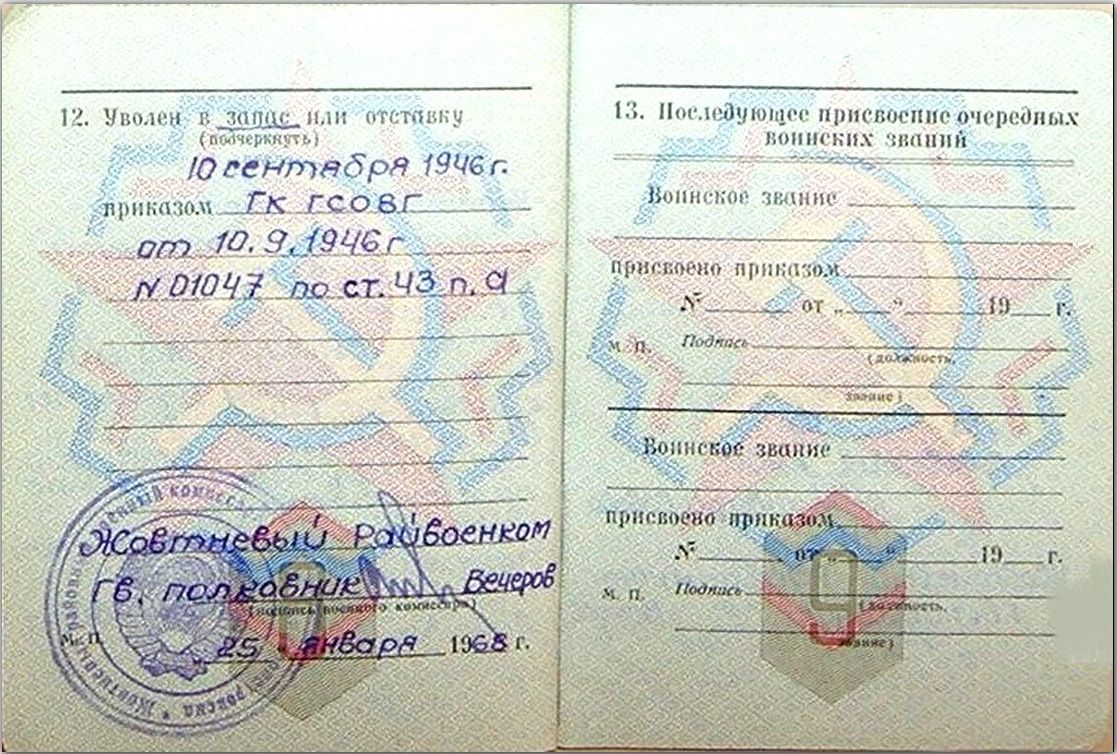 12. Уволен в запас или отставку
(подчеркнуть)
10 сентября 1946 г.
приказом ГК ГСОВГ
от 10.9.1946 г
N 01047 по ст. 43 п. а
Жовтневый Райвоенком
Гв. полковник Вечеров
(подпись военного комиссара)
М. П. 25 " января 1968 г.
13. Последующее присвоение очередных
воинских званий
Воинское звание
присвоено приказом
№ от „ “ 19 г.
М. П. Подпись
(должность,
звание)
Воинское звание
присвоено приказом
№ от „ “ 19 г.
М. П. Подпись
(должность,
звание)